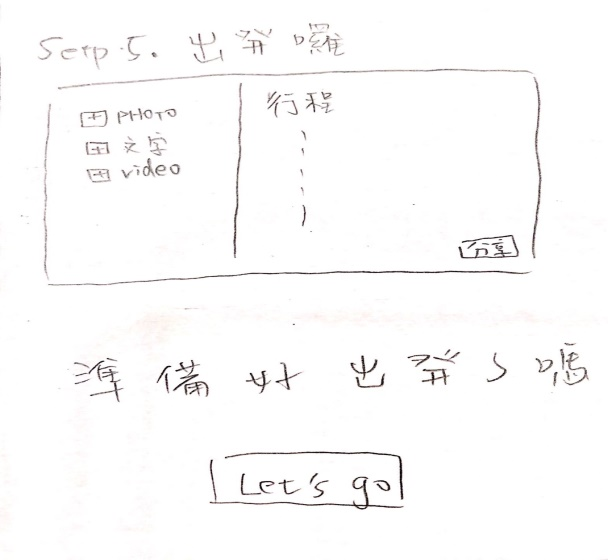 Setp 5. 出發囉
PHOTO
文字
video
行程
分享
準備好出發了嗎
Let's go